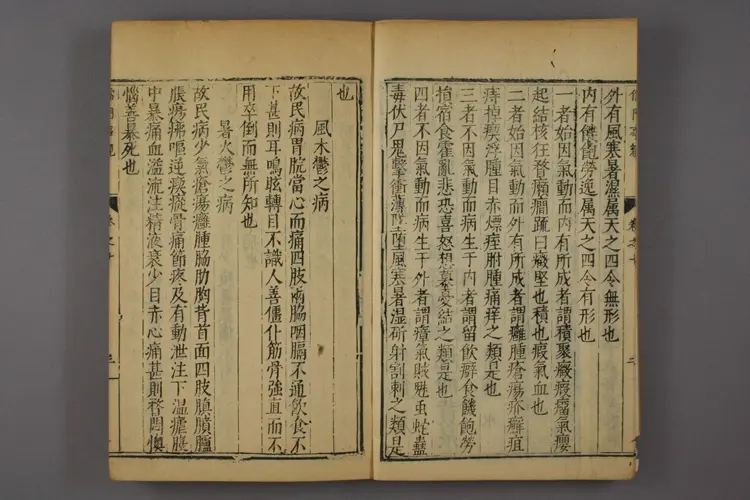 外有風寒暑濕屬天之四令無形也
內有饑飽勞逸屬天之四令有形也
一者始因氣動而內有所成者謂積聚癥瘕瘤氣癭
起結核狂瞀癲癇疏曰癥堅也積也瘕氣血也
二者始因氣動而外有所成者謂癰腫瘡瘍疥癬疽
痔掉瘈浮腫目赤熛痓胕腫痛痒之類是也
三者不因氣動而病生于內者謂留飲癖食饑飽勞
損宿食霍亂悲恐喜怒想慕憂結之類是也
四者不因氣動而病生于外者謂瘴氣賊魅虫蛇蠱
毒伏尸鬼擊衝薄墜墮風寒暑濕斫射割刺之類是
也
風木鬱之病
故民病胃脘當心而痛四肢兩脇咽膈不通飲食不
下甚則耳鳴眩轉目不識人善僵仆筋骨強直而不
用卒倒而無所知也
暑火鬱之病
故民病少氣瘡瘍癰腫脇肋胸背首面四肢䐜膹臚
脹瘍疿嘔逆瘈瘲骨痛節疼及有動泄注下溫瘧腹
中暴痛血溢流注精液衰少目赤心痛甚則瞀悶懊
憹善暴死也
卷之十
二
三